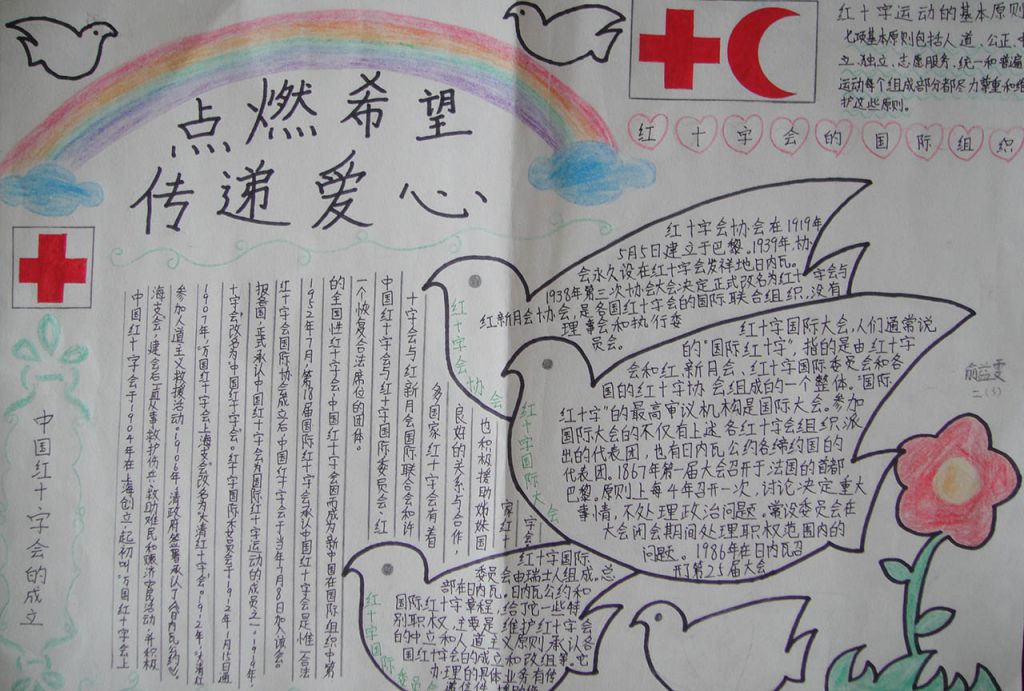 点燃希望
传递爱心
红十字运动的基本原则
七项基本原则包括人道、公正、中
立、独立、志愿服务、统一和普遍
运动每个组成部分都尽力尊重和维
护这些原则。
红十字会的国际组织
红十字会协会
红十字会协会在1919年
5月5日建立于巴黎。1939年,协
会永久设在红十字会发祥地日内瓦。
1938年第三次协会大会决定正式改名为红十字会与
红新月会协会,是各国红十字会的国际联合组织,没有
理事会和执行委
员会。
红十字国际大会
红十字国际大会,人们通常说
的"国际红十字",指的是由红十字
会和红新月会、红十字国际委员会和各
国的红十字协会组成的一个整体。"国际
红十字"的最高审议机构是国际大会。参加
国际大会的不仅有上述各红十字会组织派
出的代表团,也有日内瓦公约各缔约国的
代表团。1867年第一届大会召开于法国的首都
巴黎。原则上每4年召开一次,讨论决定重大
事情,不处理政治问题。常设委员会在
大会闭会期间处理职权范围内的
问题。1986年在日内瓦召
开第25届大会
俞益雯
二(3)
红十字国际
委员会
红十字国际
委员会由瑞士人组成。总
部在日内瓦。日内瓦公约和
国际红十字章程,给了它一些特
别职权,主要是维护红十字会
的中立和人道主义原则承认各
国红十字会的成立和改组等。它
办理的具体业务有传
中国红十字会的成立
中国红十字会于1904年在上海创立,起初叫"万国红十字会上
海支会",建会后一直从事救护伤兵、救助难民和赈济灾民活动,并积极
参加人道主义救援活动。1906年,清政府签署承认了《日内瓦公约》。
1907年,"万国红十字会上海支会"改名为"大清红十字会"。1912年,"大清红
十字会"改名为"中国红十字会"。红十字国际委员会于1912年1月15日通
报各国,正式承认中国红十字会为国际红十字运动的成员之一。1919年,
红十字会国际协会成立后,中国红十字会于当年7月8日加入该会
1952年7月,第18届国际红十字会承认中国红十字会是惟一合法
的全国性红十字会,中国红十字会因而成为新中国在国际组织中第
一个恢复合法席位的团体。
中国红十字会与红十字国际委员会、红
十字会与红新月会国际联合会和许
多国家红十字会有着
良好的关系与合作,
也积极援助姊妹国
家红十
字会